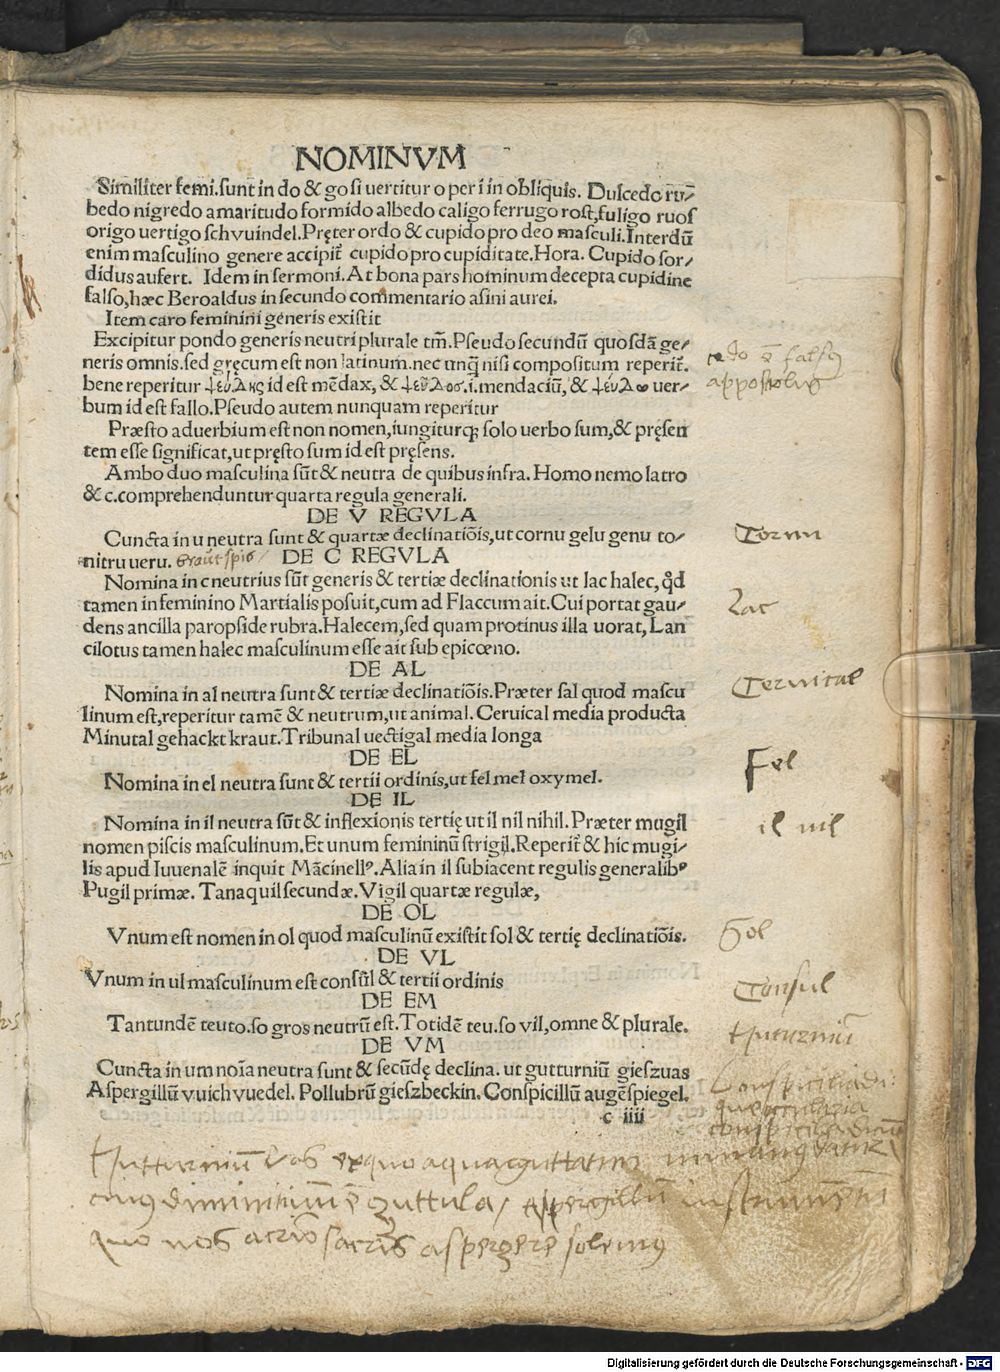 NOMINVM
Similiter femi.sunt in do & go si uertitur o per i in obliquis. Dulcedo ru⸗
bedo nigredo amaritudo formido albedo caligo ferrugo rost,fuligo ruos
origo uertigo schvuindel.Pręter ordo & cupido pro deo masculi.Interdū
enim masculino genere accipit̄ cupido pro cupiditate.Hora. Cupido sor⸗
didus aufert. Idem in sermoni.At bona pars hominum decepta cupidine
falso,hæc Beroaldus in secundo commentario asini aurei.
Item caro feminini generis existit
Excipitur pondo generis neutri plurale tm̄.Pseudo secundū quosdā ge⸗
neris omnis.sed gręcum est non latinum.nec unq̄ nisi compositum reperit̄.
bene reperitur ψεύδης id est mēdax, & ψεῦδοσ.i.mendaciū, & ψεύδω uer⸗
bum id est fallo.Pseudo autem nunquam reperitur
Præsto aduerbium est non nomen,iungiturq; solo uerbo sum,& pręsen
tem esse significat,ut pręsto sum id est pręsens.
Ambo duo masculina sūt & neutra de quibus infra. Homo nemo latro
& c.comprehenduntur quarta regula generali.
DE V REGVLA
Cuncta in u neutra sunt & quartæ declinatiōis,ut cornu gelu genu to⸗
nitru ueru.
DE C REGVLA
Nomina in c neutrius sūt generis & tertiæ declinationis ut lac halec, qd̄
tamen in feminino Martialis posuit,cum ad Flaccum ait.Cui portat gau⸗
dens ancilla paropside rubra.Halecem,sed quam protinus illa uorat, Lan
cilotus tamen halec masculinum esse ait sub epicœno.
DE AL
Nomina in al neutra sunt & tertiæ declinatiōis.Præter sal quod mascu
linum est,reperitur tamē & neutrum,ut animal. Ceruical media producta
Minutal gehackt kraut.Tribunal uectigal media longa
DE EL
Nomina in el neutra sunt & tertii ordinis,ut fel mel oxymel.
DE IL
Nomina in il neutra sūt & inflexionis tertię ut il nil nihil. Præter mugil
nomen piscis masculinum. Et unum femininū strigil.Reperit̄ & hic mugi⸗
lis apud Iuuenalē inquit Mācinellꝰ. Alia in il subiacent regulis generalibꝰ
Pugil primæ. Tanaquil secundæ. Vigil quartæ regulæ,
DE OL
Vnum est nomen in ol quod masculinū existit sol & tertię declinatiōis.
DE VL
Vnum in ul masculinum est consūl & tertii ordinis
DE EM
Tantundē teuto.so gros neutrū est.Totidē teu.so vil,omne & plurale.
DE VM
Cuncta in um noīa neutra sunt & secūdę declina. ut gutturniū gieszuas
Aspergillū vuich vuedel. Pollubrū gieszbeckin. Conspicillū augēspiegel.
c iiii
do ē falsꝰ
appostolus
Cornu
Lac
Ceruical
Fel
il nil
Sol
Consul
Guturniū
Gutturniū vas ex quo aqua guttatim
cuius diminitiuū ē guttula, Aspergillū instrumētū
quo nos sacris aspergere solemus
Digitalisierung gefördert durch die Deutsche Forschungsgemeinschaft - DFG